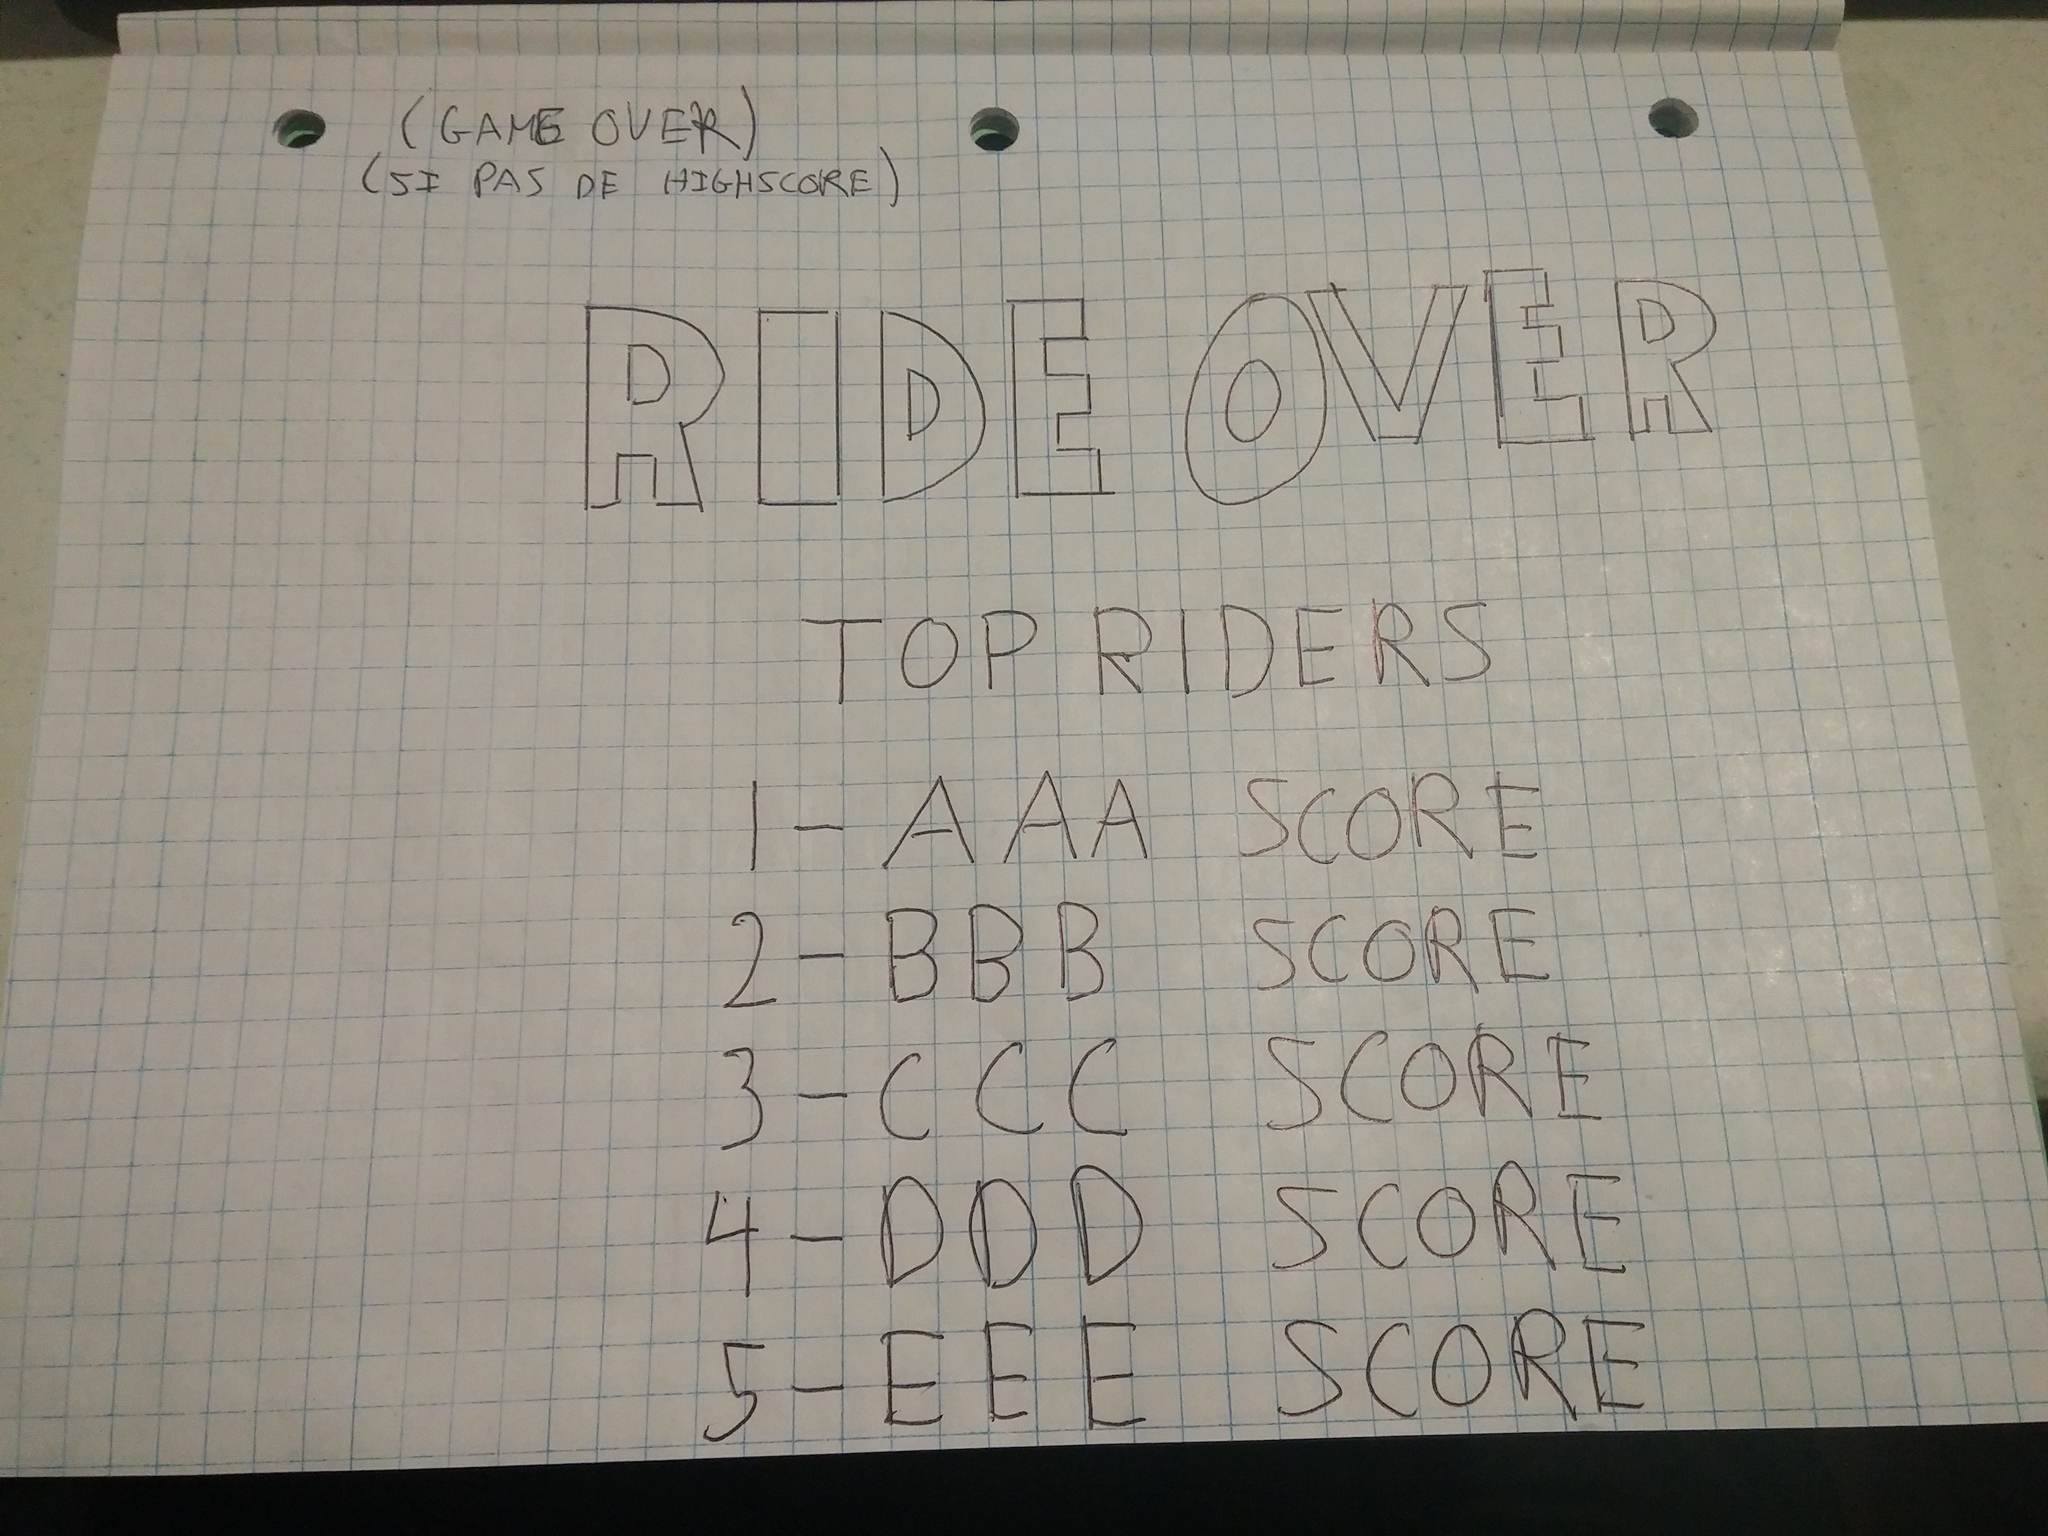 (GAME OVER)
(SI PAS DE HIGHSCORE)
RIDE OVER
TOP RIDERS
1-AAA SCORE
2-BBB SCORE
3-CCC SCORE
4-DDD SCORE
5-EEE SCORE